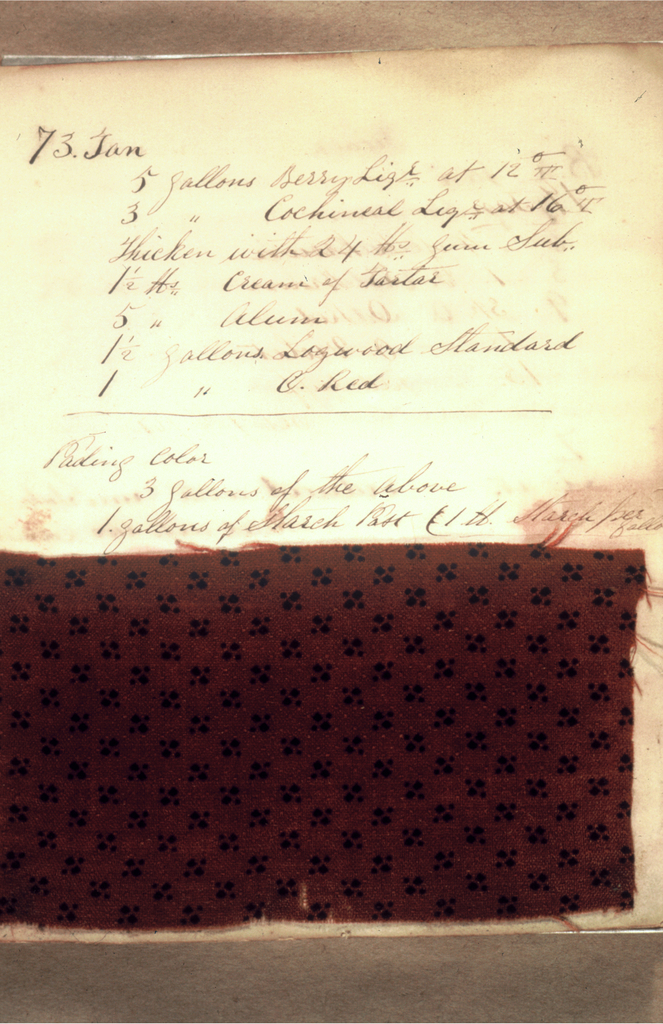 73. Tan
5 gallons Berry Liqr. at 12° TW
3 " Cochineal Liqr. at 16° T
Thicken with 24 lbs. gum Sub.
1½ lbs. Cream of Tartar
5 " Alum
1½ gallons Logwood Standard
1 " O. Red
Pading Color
3 gallons of the above
1. gallons of Starch Past (1 lb. Starch per gall